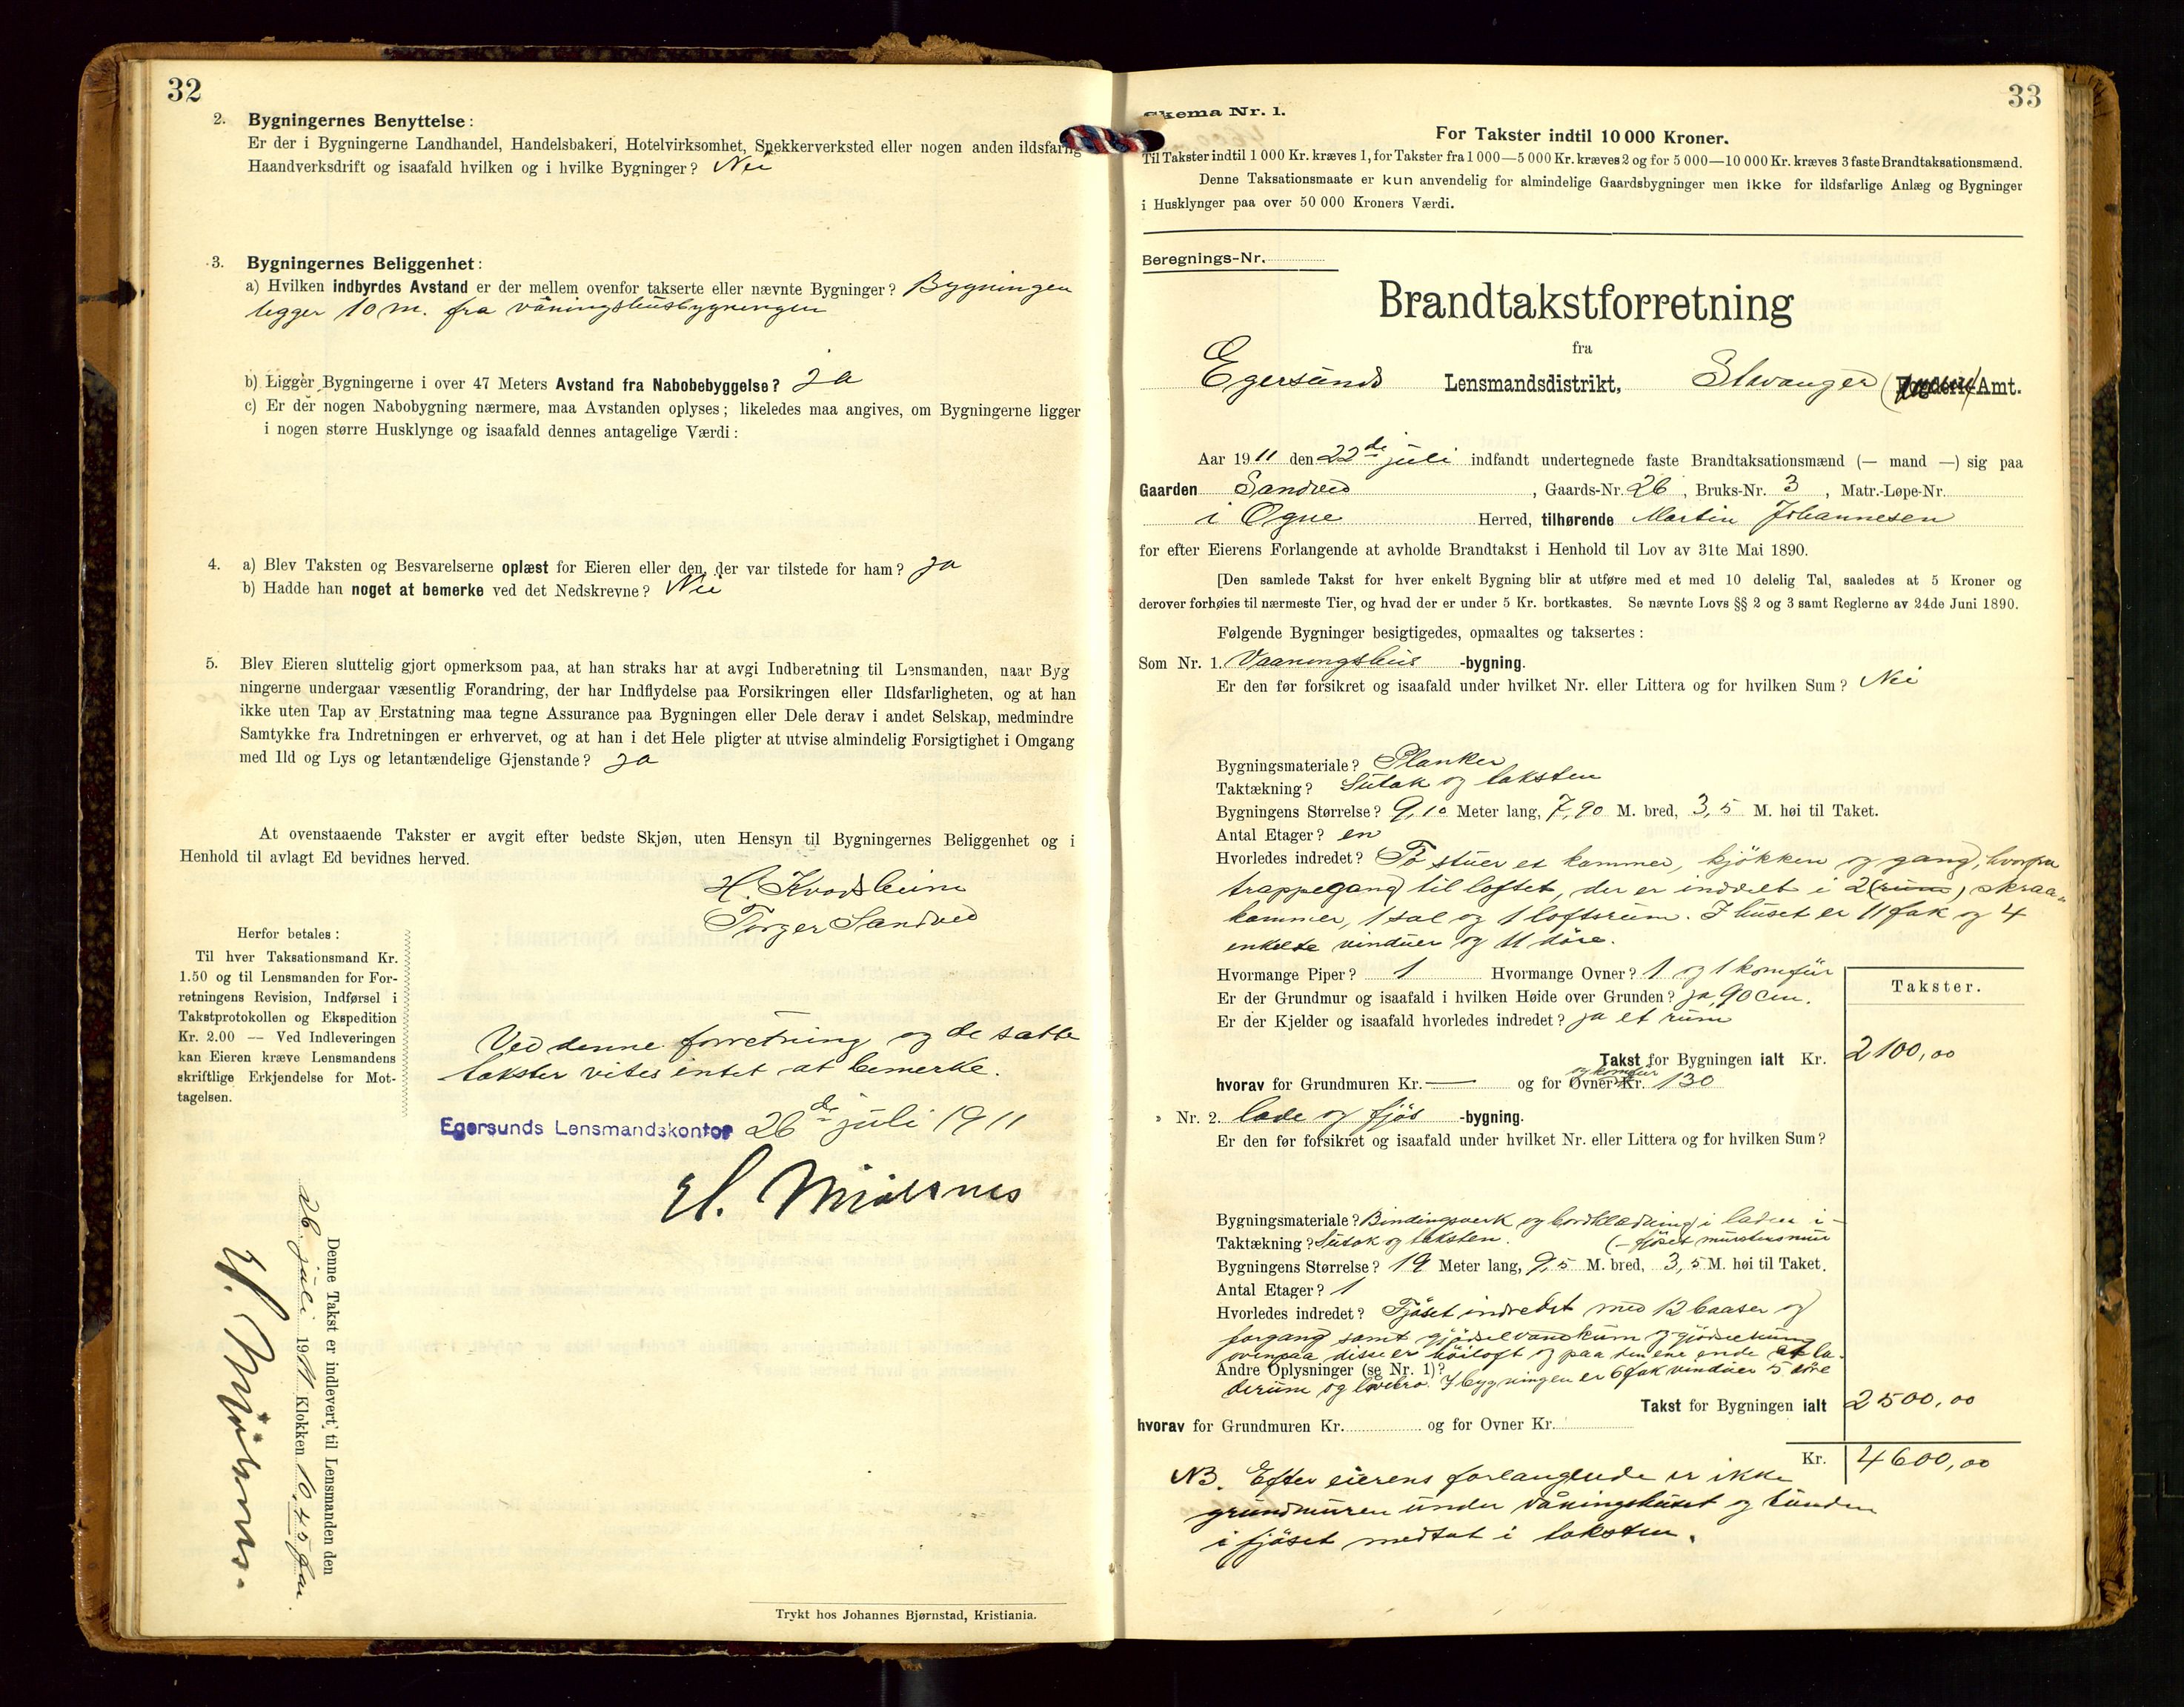 32
2. Bygningernes Benyttelse:
Er der i Bygningerne Landhandel, Handelsbakeri, Hotelvirksomhet, Snekkerverksted eller nogen anden ildsfarlig
Haandverksdrift og isaafald hvilken og i hvilke Bygninger? Nei
3. Bygningernes Beliggenhet:
a) Hvilken indbyrdes Avstand er der mellem ovenfor takserte eller nævnte Bygninger? Bygningen
ligger 10 m. fra våningshusbygningen
b) Ligger Bygningerne i over 47 Meters Avstand fra Nabobebyggelse? Ja
c) Er der nogen Nabobygning nærmere, maa Avstanden oplyses; likeledes maa angives, om Bygningerne ligger
i nogen større Husklynge og isaafald dennes antagelige Værdi:
4. a) Blev Taksten og Besvarelserne oplæst for Eieren eller den, der var tilstede for ham? Ja
b) Hadde han noget at bemerke ved det Nedskrevne? Nei
5. Blev Eieren sluttelig gjort opmerksom paa, at han straks har at avgi Indberetning til Lensmanden, naar Byg
ningerne undergaar væsentlig Forandring, der har Indflydelse paa Forsikringen eller Ildsfarligheten, og at han
ikke uten Tap av Erstatning maa tegne Assurance paa Bygningen eller Dele derav i andet Selskap, medmindre
Samtykke fra Indretningen er erhvervet, og at han i det Hele pligter at utvise almindelig Forsigtighet i Omgang
med Ild og Lys og letantændelige Gjenstande? Ja
At ovenstaaende Takster er avgit efter bedste Skjøn, uten Hensyn til Bygningernes Beliggenhet og i
Henhold til avlagt Ed bevidnes herved.
H. Kvadsheim
Torger Sandved
Herfor betales:
Til hver Taksationsmand Kr.
1.50 og til Lensmanden for For-
retningens Revision, Indførsel i
Takstprotokollen og Ekspedition
Kr. 2.00 — Ved Indleveringen
kan Eieren kræve Lensmandens
skriftlige Erkjendelse for Mot-
tagelsen.
Ved denne forretning og de satte
takster vites intet at bemerke.
Egersunds Lensmandskontor 26de juli 1911
Denne Takst er indlevert til Lensmanden den
26. juli 1911 Klokken 10 45 fm.
Trykt hos Johannes Bjørnstad, Kristiania.
33
Skema Nr. 1.
For Takster indtil 10 000 Kroner.
Til Takster indtil 1 000 Kr. kræves 1, for Takster fra 1 000—5 000 Kr. kræves 2 og for 5 000—10 000 Kr. kræves 3 faste Brandtaksationsmænd.
Denne Taksationsmaate er kun anvendelig for almindelige Gaardsbygninger men ikke for ildsfarlige Anlæg og Bygninger
i Husklynger paa over 50 000 Kroners Værdi.
Beregnings-Nr.
Brandtakstforretning
fra
Egersunds Lensmandsdistrikt, Stavanger Amt.
Aar 1911 den 22de juli indfandt undertegnede faste Brandtaksationsmænd (— mand —) sig paa
Gaarden Sandved, Gaards-Nr. 26, Bruks-Nr. 3, Matr.-Løpe-Nr.
i Ogne Herred, tilhørende Martin Johannesen
for efter Eierens Forlangende at avholde Brandtakst i Henhold til Lov av 31te Mai 1890.
[Den samlede Takst for hver enkelt Bygning blir at utføre med et med 10 delelig Tal, saaledes at 5 Kroner og
derover forhøies til nærmeste Tier, og hvad der er under 5 Kr. bortkastes. Se nævnte Lovs §§ 2 og 3 samt Reglerne av 24de Juni 1890.
Følgende Bygninger besigtigedes, opmaaltes og taksertes:
Som Nr. 1. Vaaningshus -bygning.
Er den før forsikret og isaafald under hvilket Nr. eller Littera og for hvilken Sum? Nei
Bygningsmateriale? Planker
Taktækning? Sutak og taksten
Bygningens Størrelse? 9,10 Meter lang, 7,90 M. bred, 3,5 M. høi til Taket.
Antal Etager? en
Hvorledes indredet? To stuer et kammer, kjøkken og gang, hvorfra
trappegang til loftet, der er inddelt i 2 (rum) skraa-
kammer, 1 sal og 1 loftsrum. I huset er 11 fak og 4
enkelte vinduer og 11 døre.
Hvormange Piper? 1 Hvormange Ovner? 1 og 1 komfür
Er der Grundmur og isaafald i hvilken Høide over Grunden? ja, 90 cm.
Er der Kjelder og isaafald hvorledes indredet? ja et rum
Takster.
Takst for Bygningen ialt Kr. 2100,00
hvorav for Grundmuren Kr. — og for Ovner og komfür Kr. 130
Nr. 2. lade og fjøs -bygning.
Er den før forsikret og isaafald under hvilket Nr. eller Littera og for hvilken Sum?
Bygningsmateriale? Bindingsverk og bordklædning i laden i-
Taktækning? Sutak og taksten. (- fjøset murstensmur
Bygningens Størrelse? 19 Meter lang, 9,5 M. bred, 3,5 M. høi til Taket.
Antal Etager? 1
Hvorledes indredet? Fjøset indredet med 12 baaser og
forgang samt gjødselvandskum og gjødselkum
ovenpaa disse er høiloft og paa den ene ende et la-
Andre Oplysninger (se Nr. 1)?
derum og låvebro. I bygningen er 6 fak vinduer 5 døre
Takst for Bygningen ialt 2500,00
hvorav for Grundmuren Kr. og for Ovner Kr.
Kr. 4600,00
NB. Efter eierens forlangende er ikke
grundmuren under våningshuset og
i fjøset medtat i taksten.